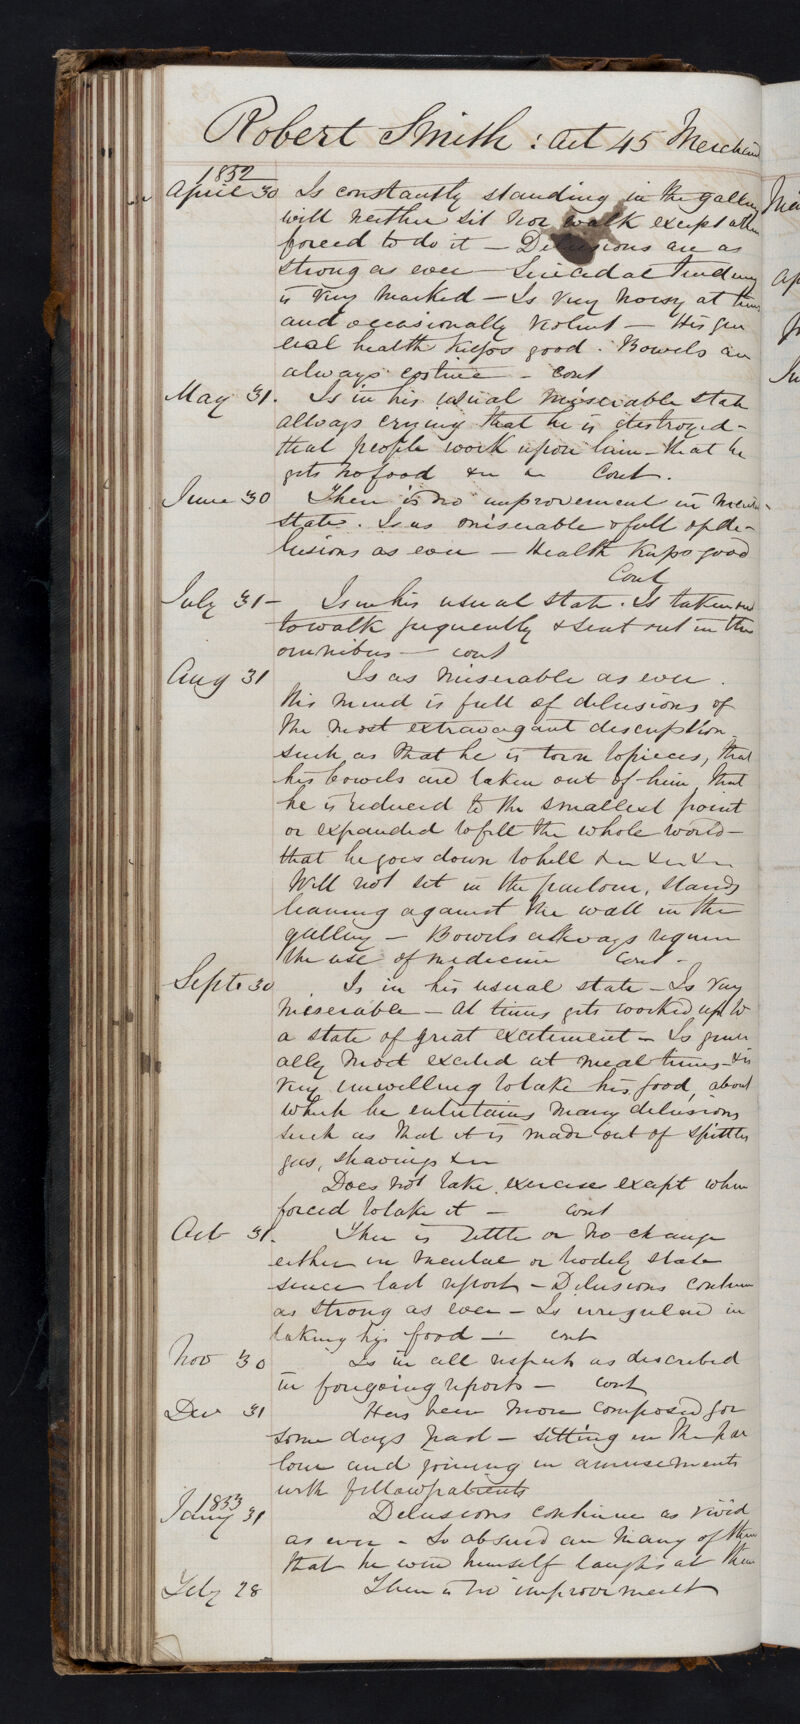 Robert Smith : aet 45 Merchant
1852
April 30 Is constantly standing in the gallery
will neither sit nor walk except when
forced to do it — Delusions are as
strong as ever — Suicidal tendency
is very marked — Is very noisy at times
and occasionally violent — His gen
eral health keeps good. Bowels are
always costive — cont
May 31. Is in his usual miserable state
always crying that he is destroyed —
that people work upon him — that he
gets no food &c &c Cont.
June 30 There is no improvement in mental
state. Is as miserable & full of de-
lusions as ever — Health keeps good
Cont
July 31 — Is in his usual state. Is taken out
to walk frequently & sent out in the
omnibus — cont
Aug 31 Is as miserable as ever.
His mind is full of delusions of
the most extravagant description
such as that he is torn to pieces, that
his bowels are taken out of him, that
he is reduced to the smallest point
or expanded to fill the whole world —
that he goes down to hell &c &c &c
Will not sit in the parlour, stands
leaning against the wall in the
gallery — Bowels always require
the use of medicine Cont —
Septr 30 Is in his usual state — Is very
miserable — At times gets worked up to
a state of great excitement — Is gener
ally most excited at meal times — & is
very unwilling to take his food, about
which he entertains many delusions
such as that it is made out of spittle
gas, shavings &c
Does not take exercise except when
forced to take it — cont
Oct 31. There is little or no change
either in mental or bodily state
since last report — Delusions continue
as strong as ever — Is irregular in
taking his food — cont
Nov 30 Is in all respects as described
in foregoing reports — cont
Dec 31 Has been more composed for
some days past — sitting in the par
lour and joining in amusements
with fellow patients
1853
Jany 31 Delusions continue as vivid
as ever — So absurd are many of them
that he even himself laughs at them
Feby 28 There is no improvement